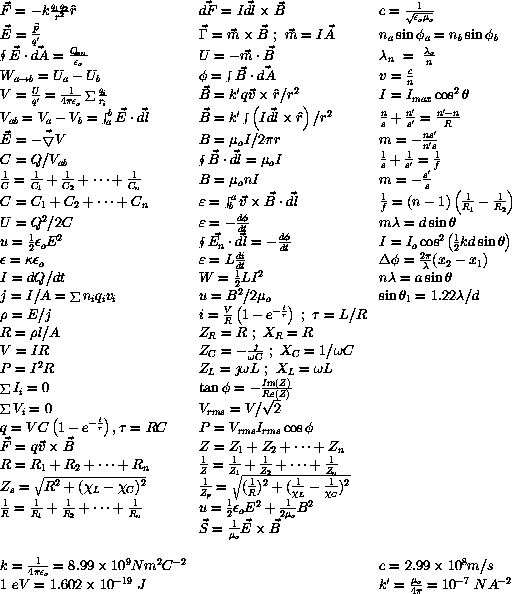 F⃗ = −k q₁q₂/r² r̂
E⃗ = F⃗/q′
∮ E⃗ · dA⃗ = Q_enc/ε₀
W_{a→b} = U_a − U_b
V = U/q′ = 1/4πε₀ ∑ q_i/r_i
V_ab = V_a − V_b = ∫_a^b E⃗ · dl⃗
E⃗ = −▽⃗V
C = Q/V_ab
1/C = 1/C₁ + 1/C₂ + ··· + 1/C_n
C = C₁ + C₂ + ··· + C_n
U = Q²/2C
u = ½ε₀E²
ϵ = κϵ₀
I = dQ/dt
j = I/A = ∑ n_i q_i v_i
ρ = E/j
R = ρl/A
V = IR
P = I²R
∑ I_i = 0
∑ V_i = 0
q = VC (1 − e^{−t/τ}), τ = RC
F⃗ = qv⃗ × B⃗
R = R₁ + R₂ + ··· + R_n
Z_s = √(R² + (χ_L − χ_C)²)
1/R = 1/R₁ + 1/R₂ + ··· + 1/R_n
dF⃗ = Idl⃗ × B⃗
Γ⃗ = m⃗ × B⃗ ; m⃗ = IA⃗
U = −m⃗ · B⃗
ϕ = ∫ B⃗ · dA⃗
B⃗ = k′qv⃗ × r̂/r²
B⃗ = k′ ∫ (Idl⃗ × r̂) /r²
B = μ₀I/2πr
∮ B⃗ · dl⃗ = μ₀I
B = μ₀nI
ε = ∫_b^a v⃗ × B⃗ · dl⃗
ε = −dϕ/dt
∮ E⃗_n · dl⃗ = −dϕ/dt
ε = L di/dt
W = ½LI²
u = B²/2μ₀
i = V/R (1 − e^{−t/τ}) ; τ = L/R
Z_R = R ; X_R = R
Z_C = −ȷ/ωC ; X_C = 1/ωC
Z_L = ȷωL ; X_L = ωL
tan ϕ = −Im(Z)/Re(Z)
V_rms = V/√2
P = V_rms I_rms cos ϕ
Z = Z₁ + Z₂ + ··· + Z_n
1/Z = 1/Z₁ + 1/Z₂ + ··· + 1/Z_n
1/Z_p = √((1/R)² + (1/χ_L − 1/χ_C)²)
u = ½ε₀E² + 1/2μ₀ B²
S⃗ = 1/μ₀ E⃗ × B⃗
c = 1/√ε₀μ₀
n_a sin ϕ_a = n_b sin ϕ_b
λ_n = λ₀/n
v = c/n
I = I_max cos² θ
n/s + n′/s′ = n′−n/R
m = −ns′/n′s
1/s + 1/s′ = 1/f
m = −s′/s
1/f = (n − 1) (1/R₁ − 1/R₂)
mλ = d sin θ
I = I₀ cos² (½kd sin θ)
Δϕ = 2π/λ (x₂ − x₁)
nλ = a sin θ
sin θ₁ = 1.22λ/d
k = 1/4πε₀ = 8.99 × 10⁹Nm²C⁻²
1 eV = 1.602 × 10⁻¹⁹ J
c = 2.99 × 10⁸m/s
k′ = μ₀/4π = 10⁻⁷ NA⁻²